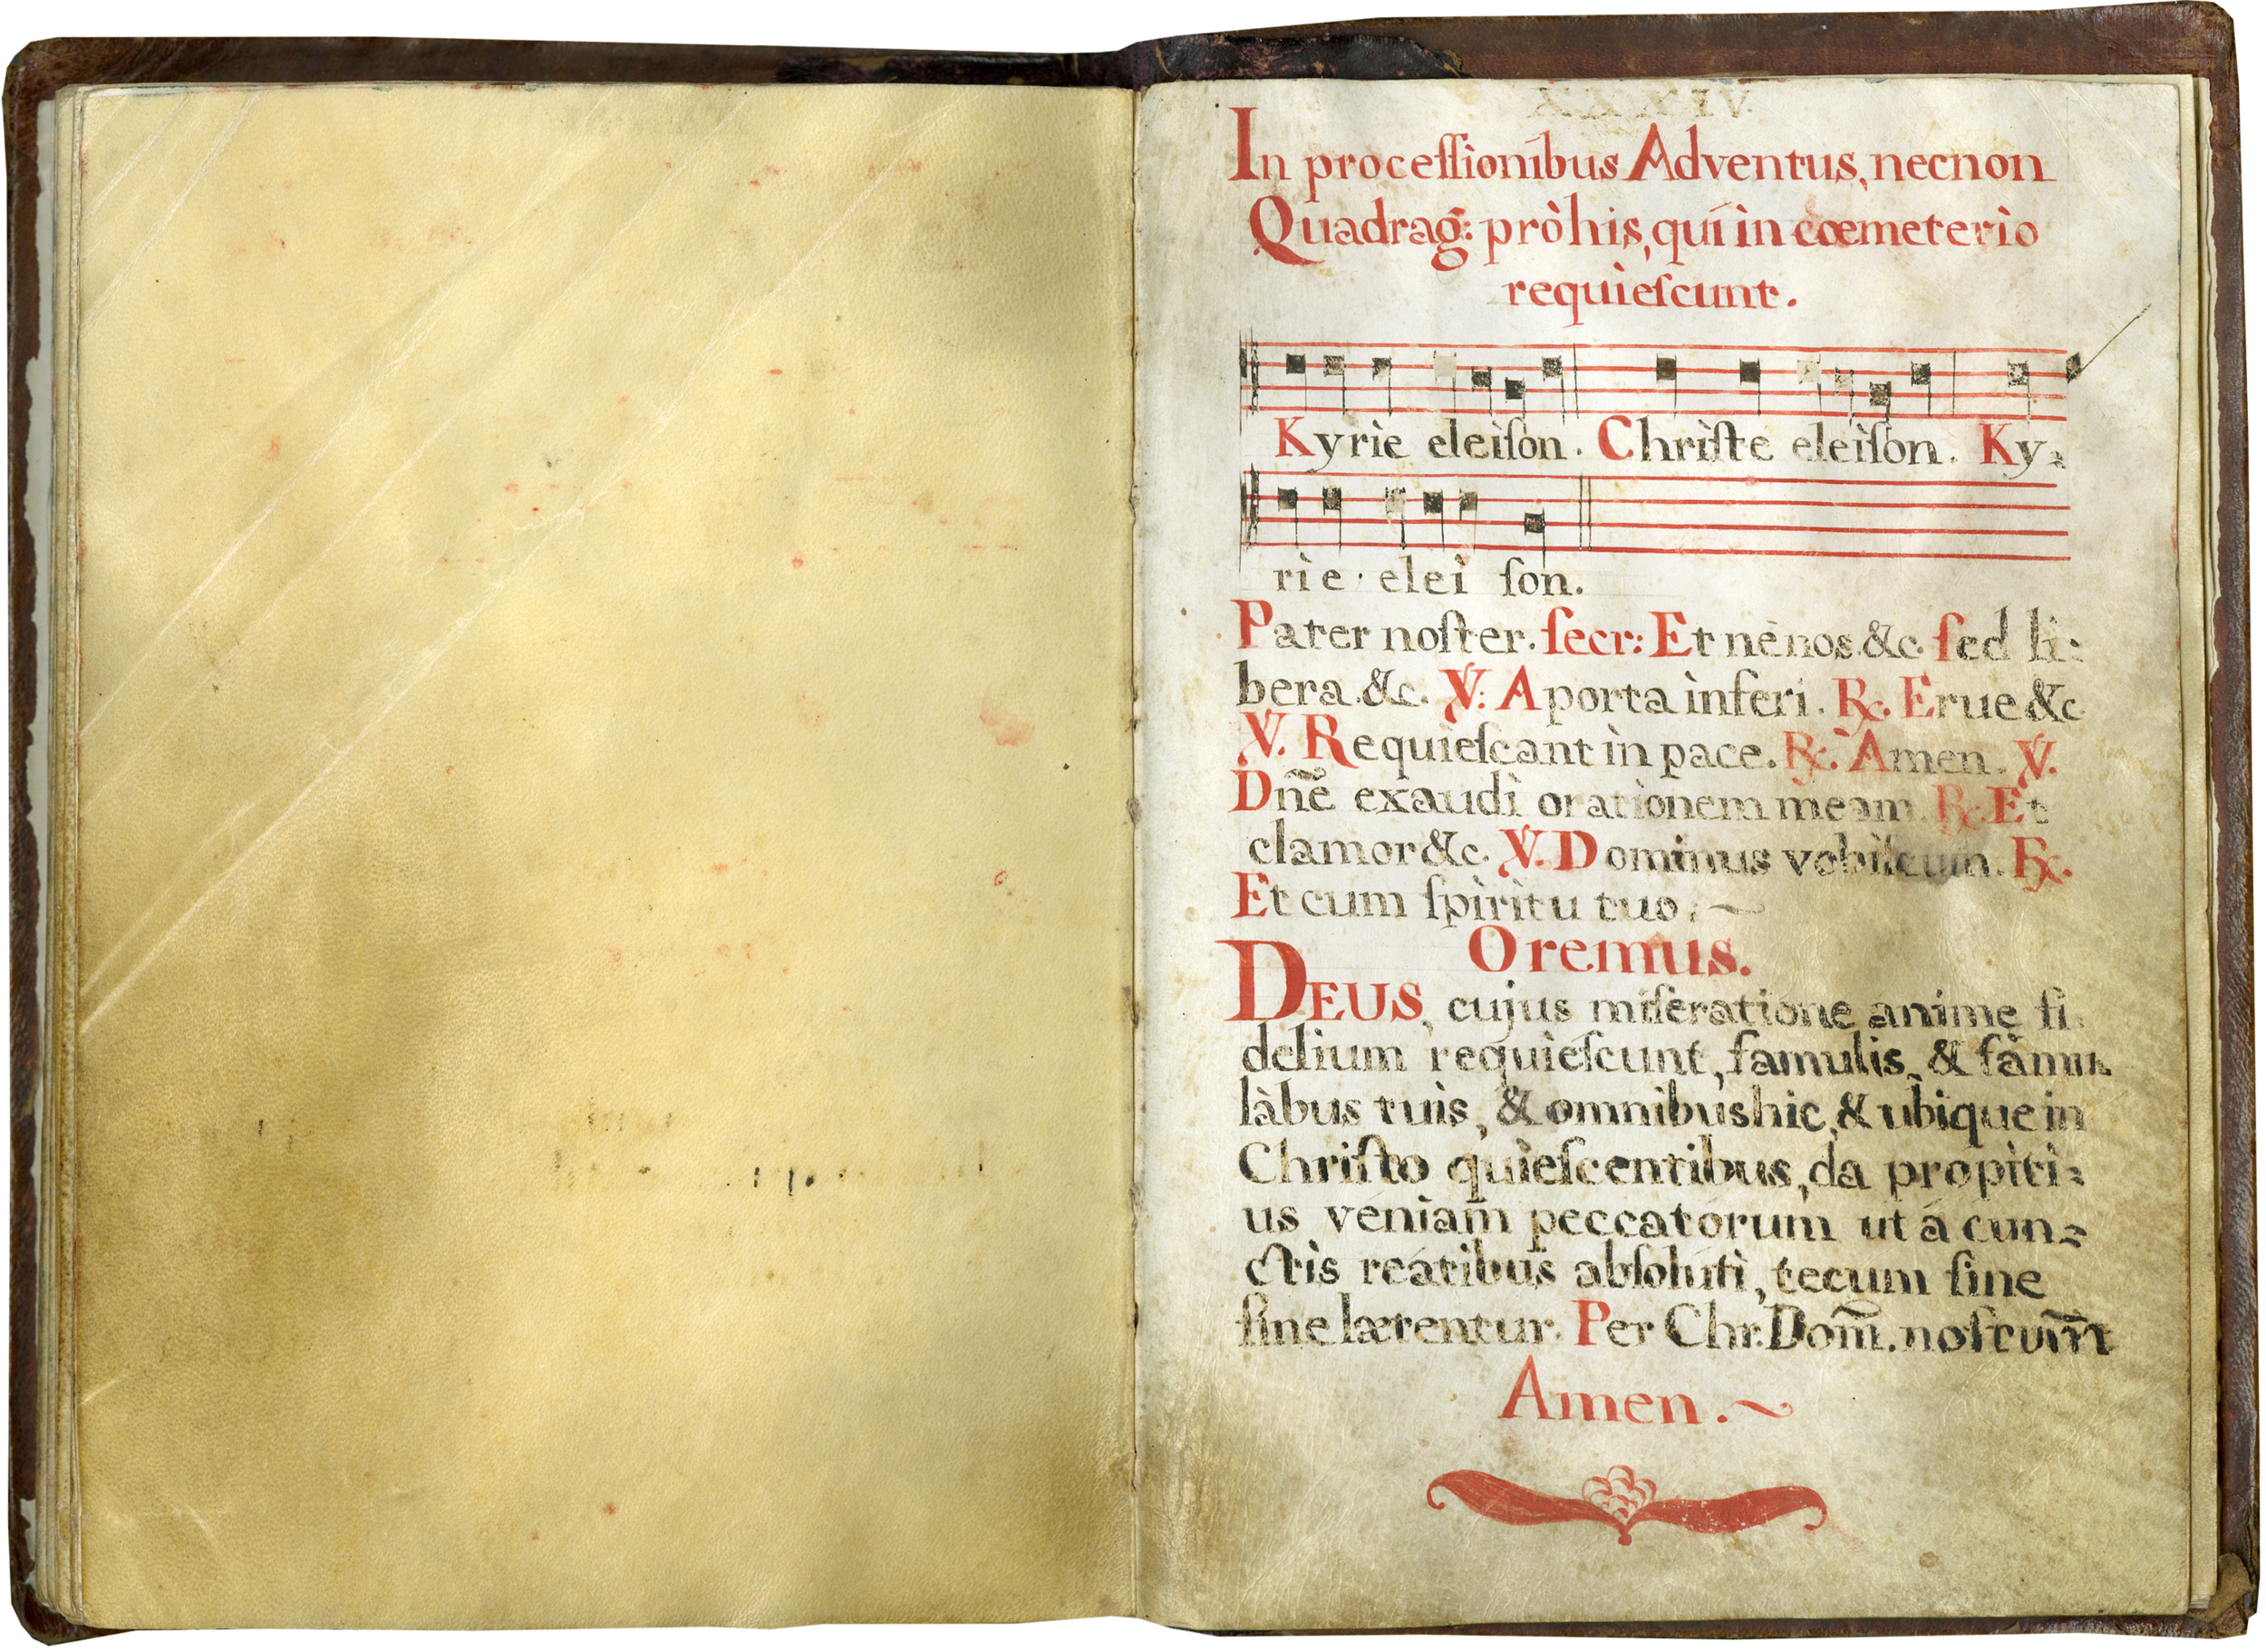 XXXIV
In proceſſionibus Adventus, necnon
Quadrag: prò his, qui ìn cœmeterìo
requìeſcunt.
Kyrìe eleìſon. Chrìſte eleìſon. Ky-
rìe eleì ſon.
Pater noſter. ſecr: Et nè nos. &c. ſed li-
bera. &c. ℣: A porta ìnferi. ℟. Erue &c
℣. Requìeſcant ìn pace. ℟. Amen. ℣.
Dñe exaudì orationem meam. ℟. Et
clamor &c. ℣. Dominus vobiſcum. ℟.
Et cum ſpìrìtu tuo. ~
Oremus.
DEUS, cujus miſeratìone animę fi-
delium requìeſcunt, famulis, & famu-
làbus tuis, & omnibus hic, & ubique in
Chriſto quìeſcentibus, da propìtì-
us véniam peccatórum ut á cun-
ctis reátibus abſolútì, tecum ſine
fine lætentur. Per Chr. Dom̃. noſtrum̃
Amen. ~